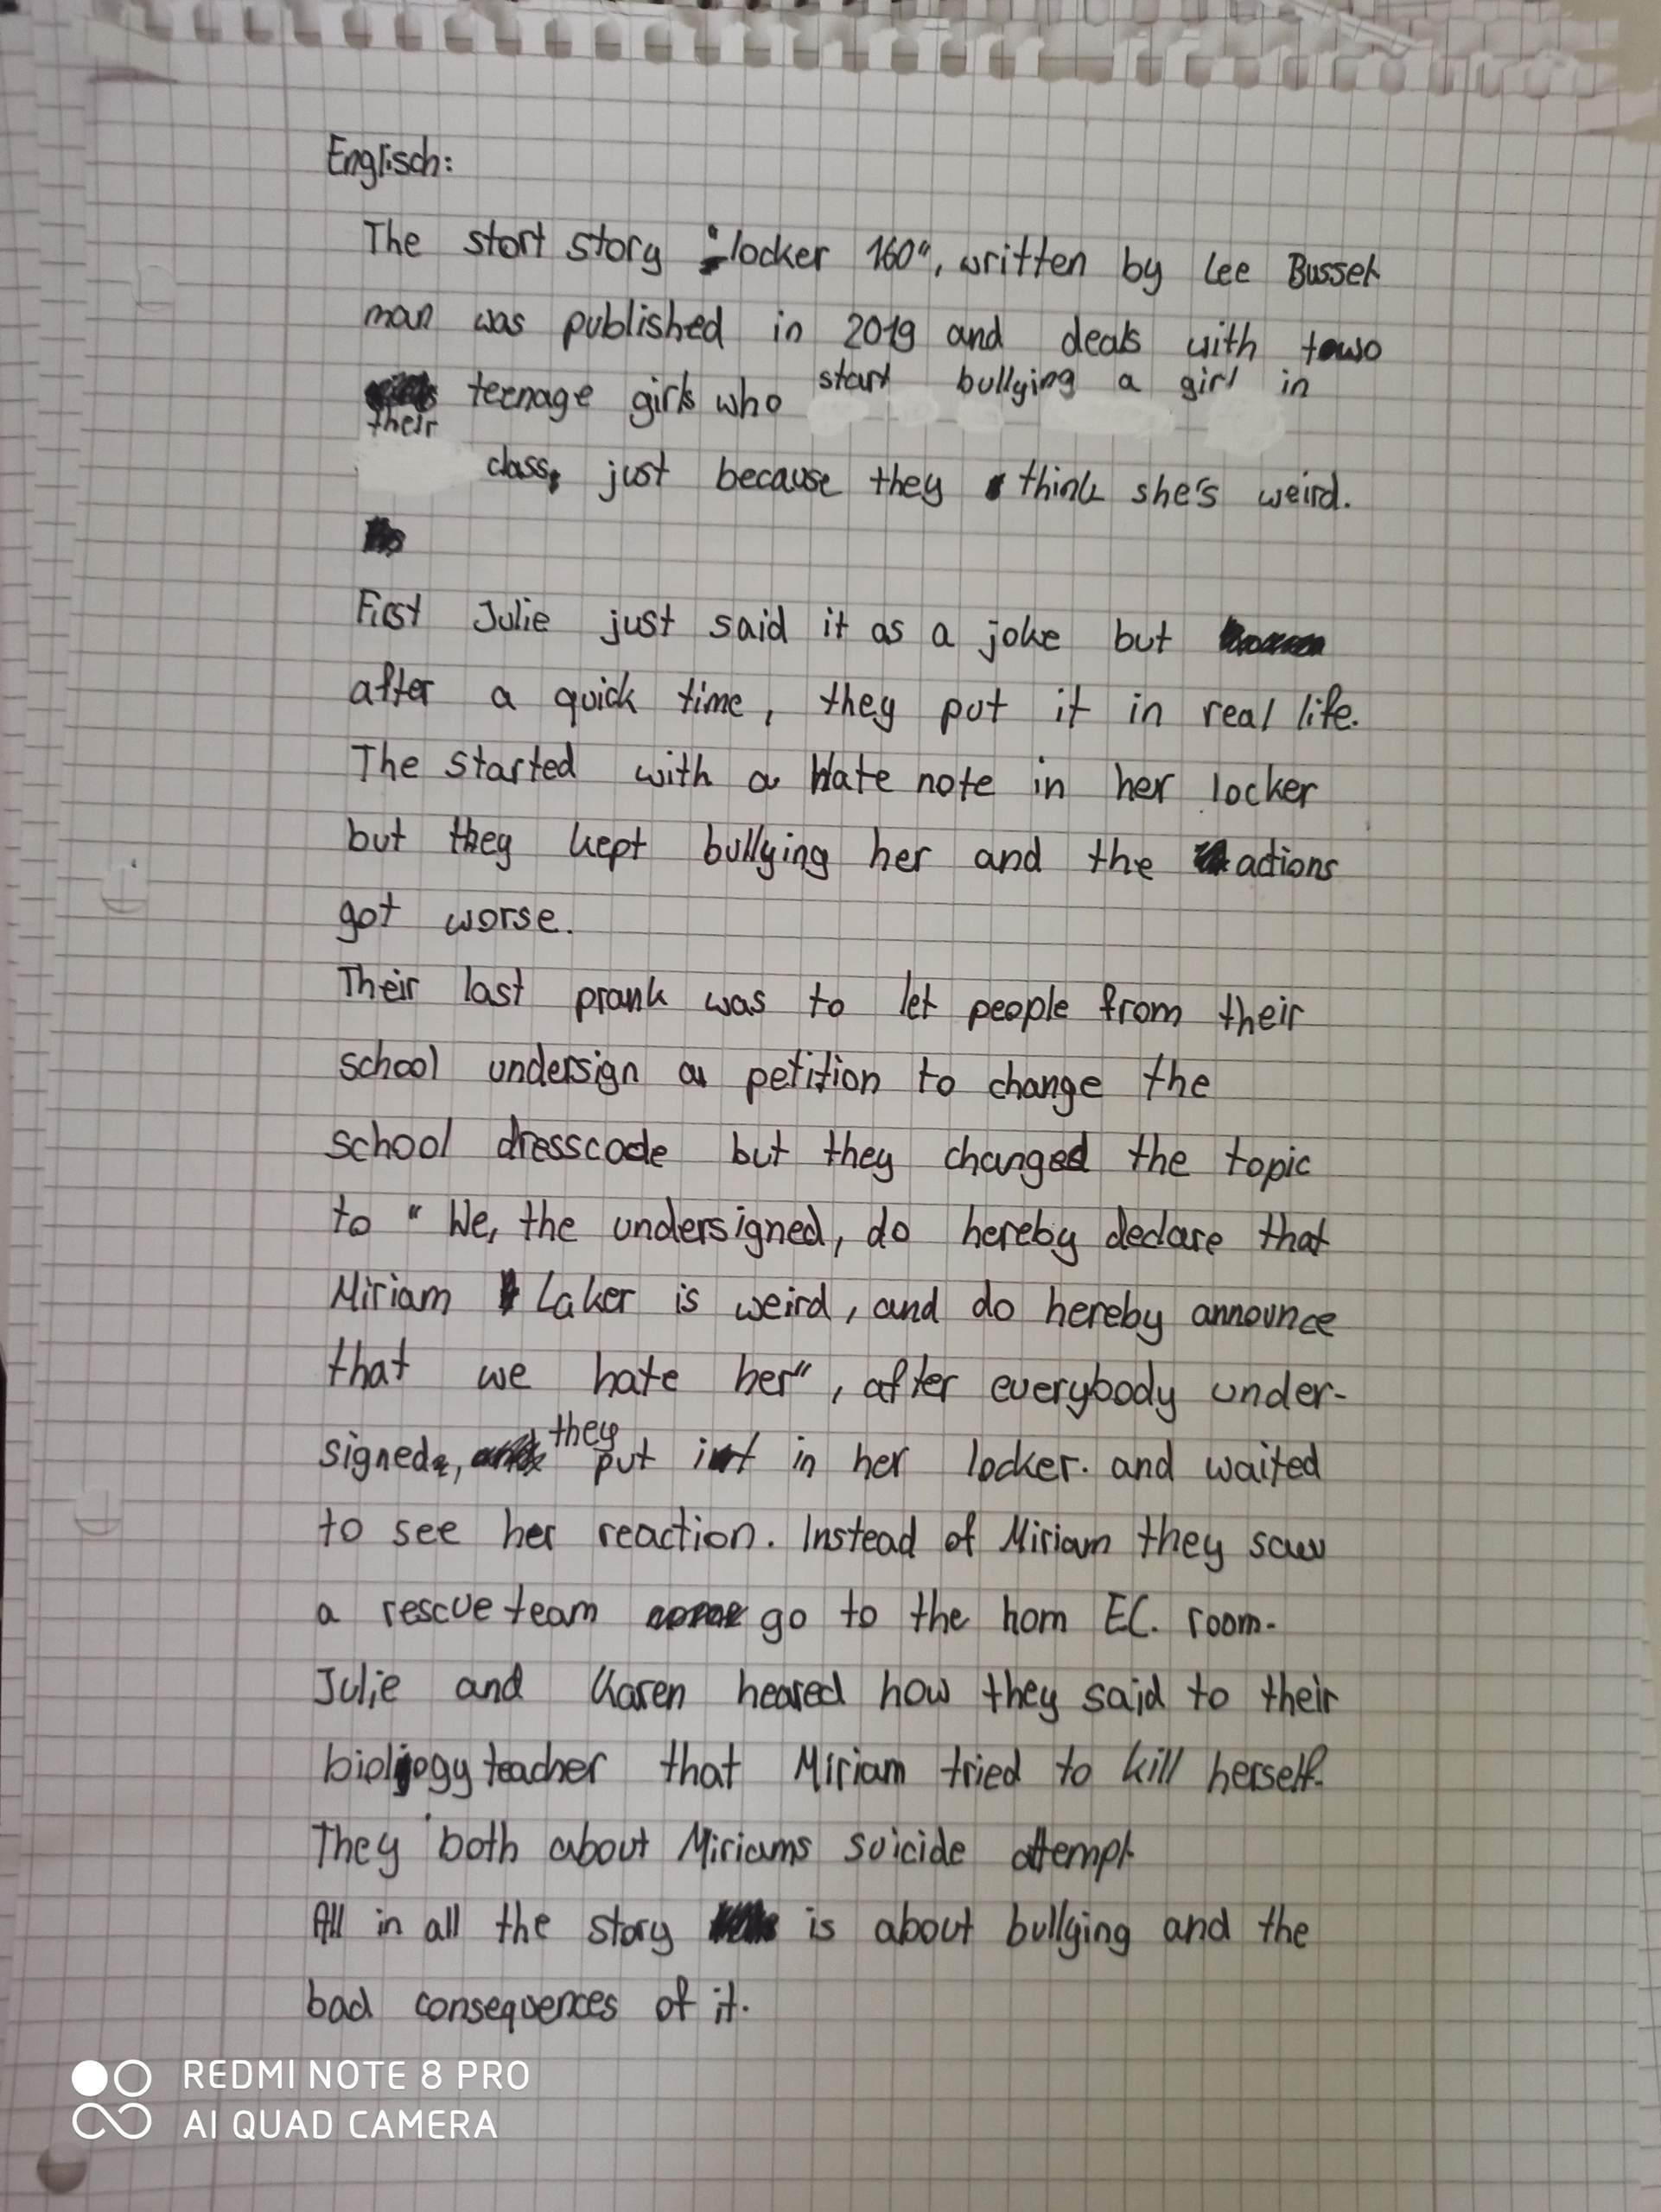 Englisch:
The stort story "locker 160", written by Lee Bussel-
man was published in 2019 and deals with two
teenage girls who start bullying a girl in
their
class, just because they think she's weird.
First Julie just said it as a joke but
after a quick time, they put it in real life.
The started with a Hate note in her locker
but they kept bullying her and the actions
got worse.
Their last prank was to let people from their
school undersign a petition to change the
school dresscode but they changed the topic
to "We, the undersigned, do hereby declare that
Miriam Laker is weird, and do hereby announce
that we hate her", after everybody under-
signed, they put it in her locker. and waited
to see her reaction. Instead of Miriam they saw
a rescue team go to the hom EC. room.
Julie and Karen heared how they said to their
biology teacher that Miriam tried to kill herself.
They both about Miriams suicide attempt
All in all the story is about bullying and the
bad consequences of it.
REDMI NOTE 8 PRO
AI QUAD CAMERA